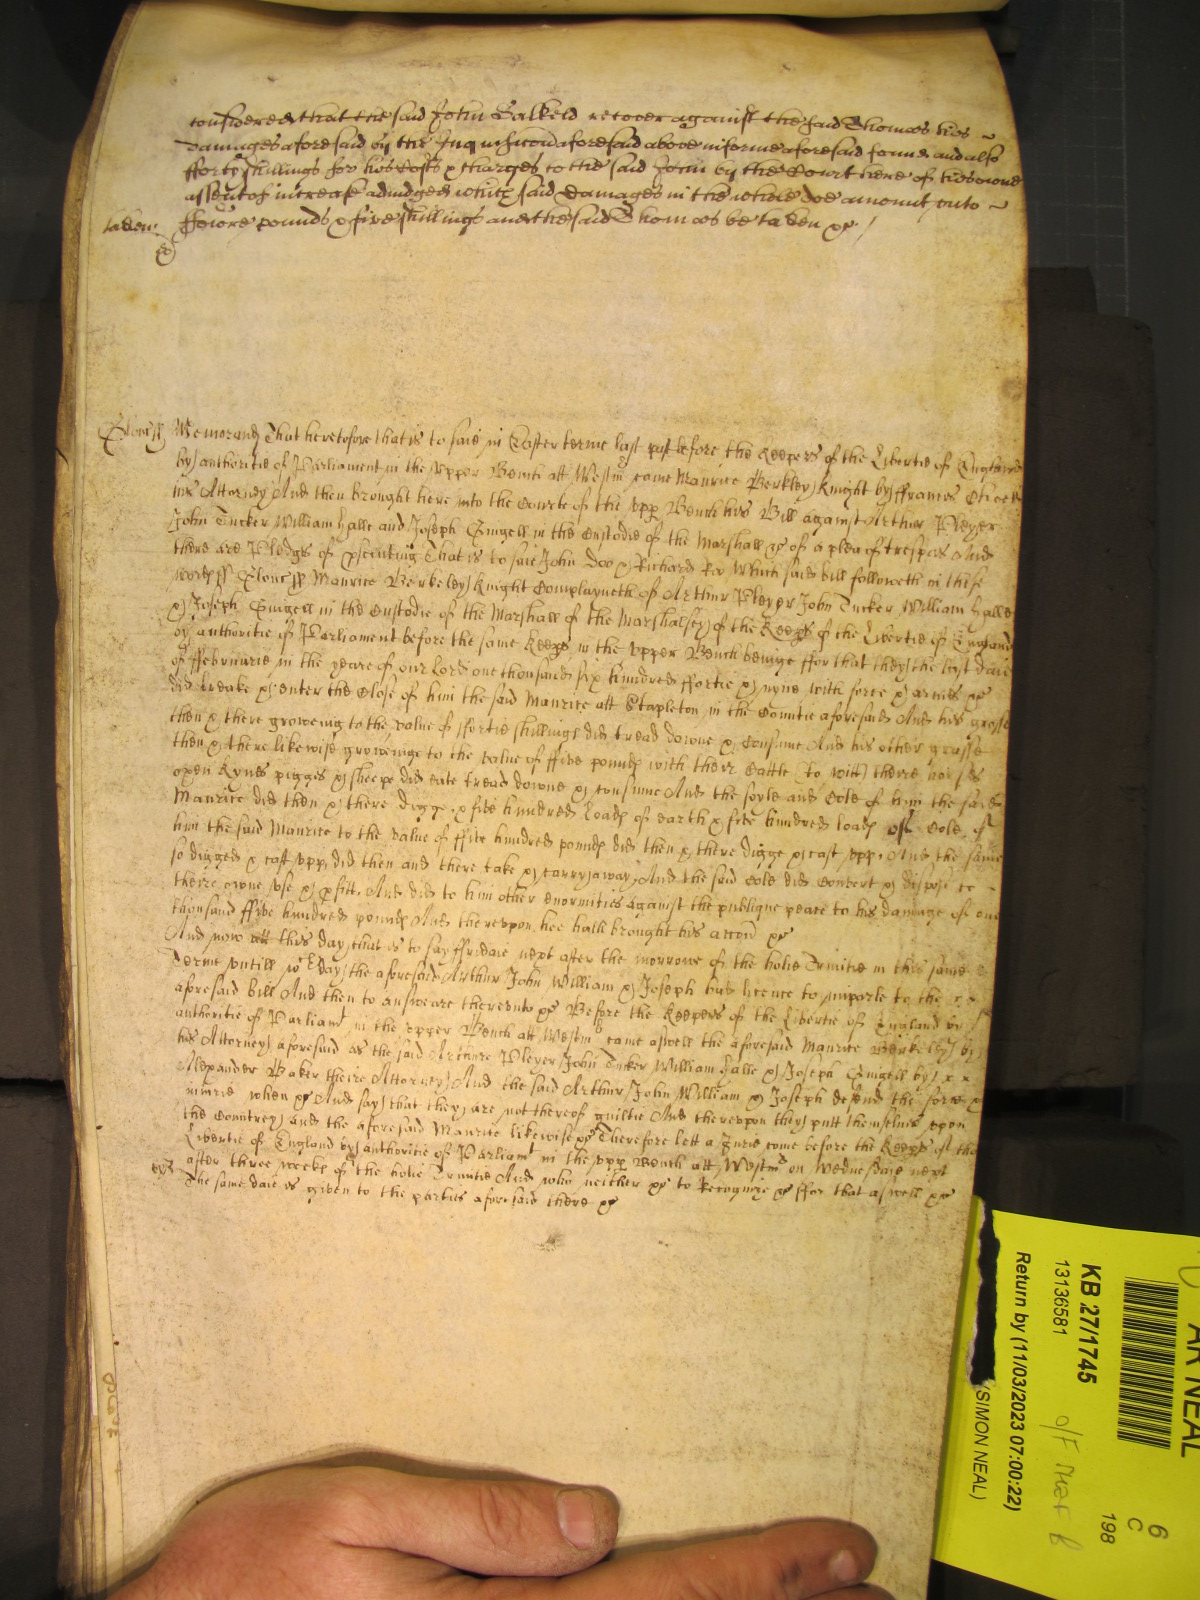 considered that the said John Salkeld recover against the said Thomas his
damages aforesaid by the Inquisicon aforesaid above in forme aforesaid found and also
fforty shillings for his Costs & charges to the said John by the Court here of his owne
assent of increase adiudged which said damages in the whole doe amount unto
ffowre pounds & five shillings and the said Thomas be taken &c /
taken
Memorand That heretofore that is to saie in Easter terme last past before the Keepers of the Libertie of England
by authoritie of Parliament in the upper Bench att Westm came Maurice Berkley Knight by ffrancis
his Attorney And then brought here into the Courte of the upp Bench his Bill against Arthur Pleyer
John Tucker William Halle and Joseph Gingell in the Custodie of the Marshall &c of a plea of trespas And
there are Pledgs of psecuting That is to saie John Doo & Richard Roo Which said bill followeth in these
words ss Glouc ss Maurice Berkeley Knight Complayneth of Arthur Pleyer John Tucker William Halle
& Joseph Gingell in the Custodie of the Marshall of the Marshalsey of the Keeps of the Libertie of England
by authoritie of Parliament before the same Keeps in the upper Bench beinge ffor that they the last daie
of ffebruarie in the yeare of our Lord one thousand six hundred ffortie & nyne with force & armes &c
did breake & enter the Close of him the said Maurice att Stapleton in the Countie aforesaid And his grasse
then & there groweing to the value of ffortie shillings did tread downe & Consume And his other grasse
then & there likewise groweinge to the value of ffive pounds with their Cattle (to witt) theire horses
oxen Kyne pigges & sheepe did eate tread downe & consume And the soyle and Cole of him the said
Maurice did then & there digge & five hundred loads of earth & five hundred loads of Cole of
him the said Maurice to the value of ffive hundred pounds did then & there digge & cast upp, And the same
so digged & cast upp, did then and there take & carry away, And the said Cole did Convert & dispose to
theire owne use & pfitt, And did to him other enormities against the publique peace to his damage of one
thousand ffive hundred pounds And thereupon hee hath brought his accon &c
And now att this day, that is to say ffridaie next after the morrowe of the holie Trinitie in this same
Terme untill wch day the aforesaid Arthur John William & Joseph had licence to imparle to the
aforesaid bill And then to answeare thereunto &c Before the Keepers of the Libertie of England by
authoritie of Parliamt in the upper Bench att Westm came aswell the aforesaid Maurice Berkeley by
his Attorney aforesaid as the said Arthure Pleyer John Tucker William Halle & Joseph Gingell by
Alexander Baker theire Attorney, And the said Arthur John William & Joseph defend the force &
iniurie when &c And say that they are not thereof guiltie And thereupon they putt themselves upon
the Countrey and the aforesaid Maurice likewise &c Therefore lett a Jurie come before the Keeps of the
Libertie of England by authoritie of Parliamt in the upp Bench att Westm on Wednesdaie next
after three weeks of the holie Trinitie And who neither &c to Recognize &c ffor that aswell &c
The same daie is given to the parties aforesaid there &c
AR NEAL
KB 27/1745
13136581
Return by (11/03/2023 07:00:22)
(SIMON NEAL)
6
C
198